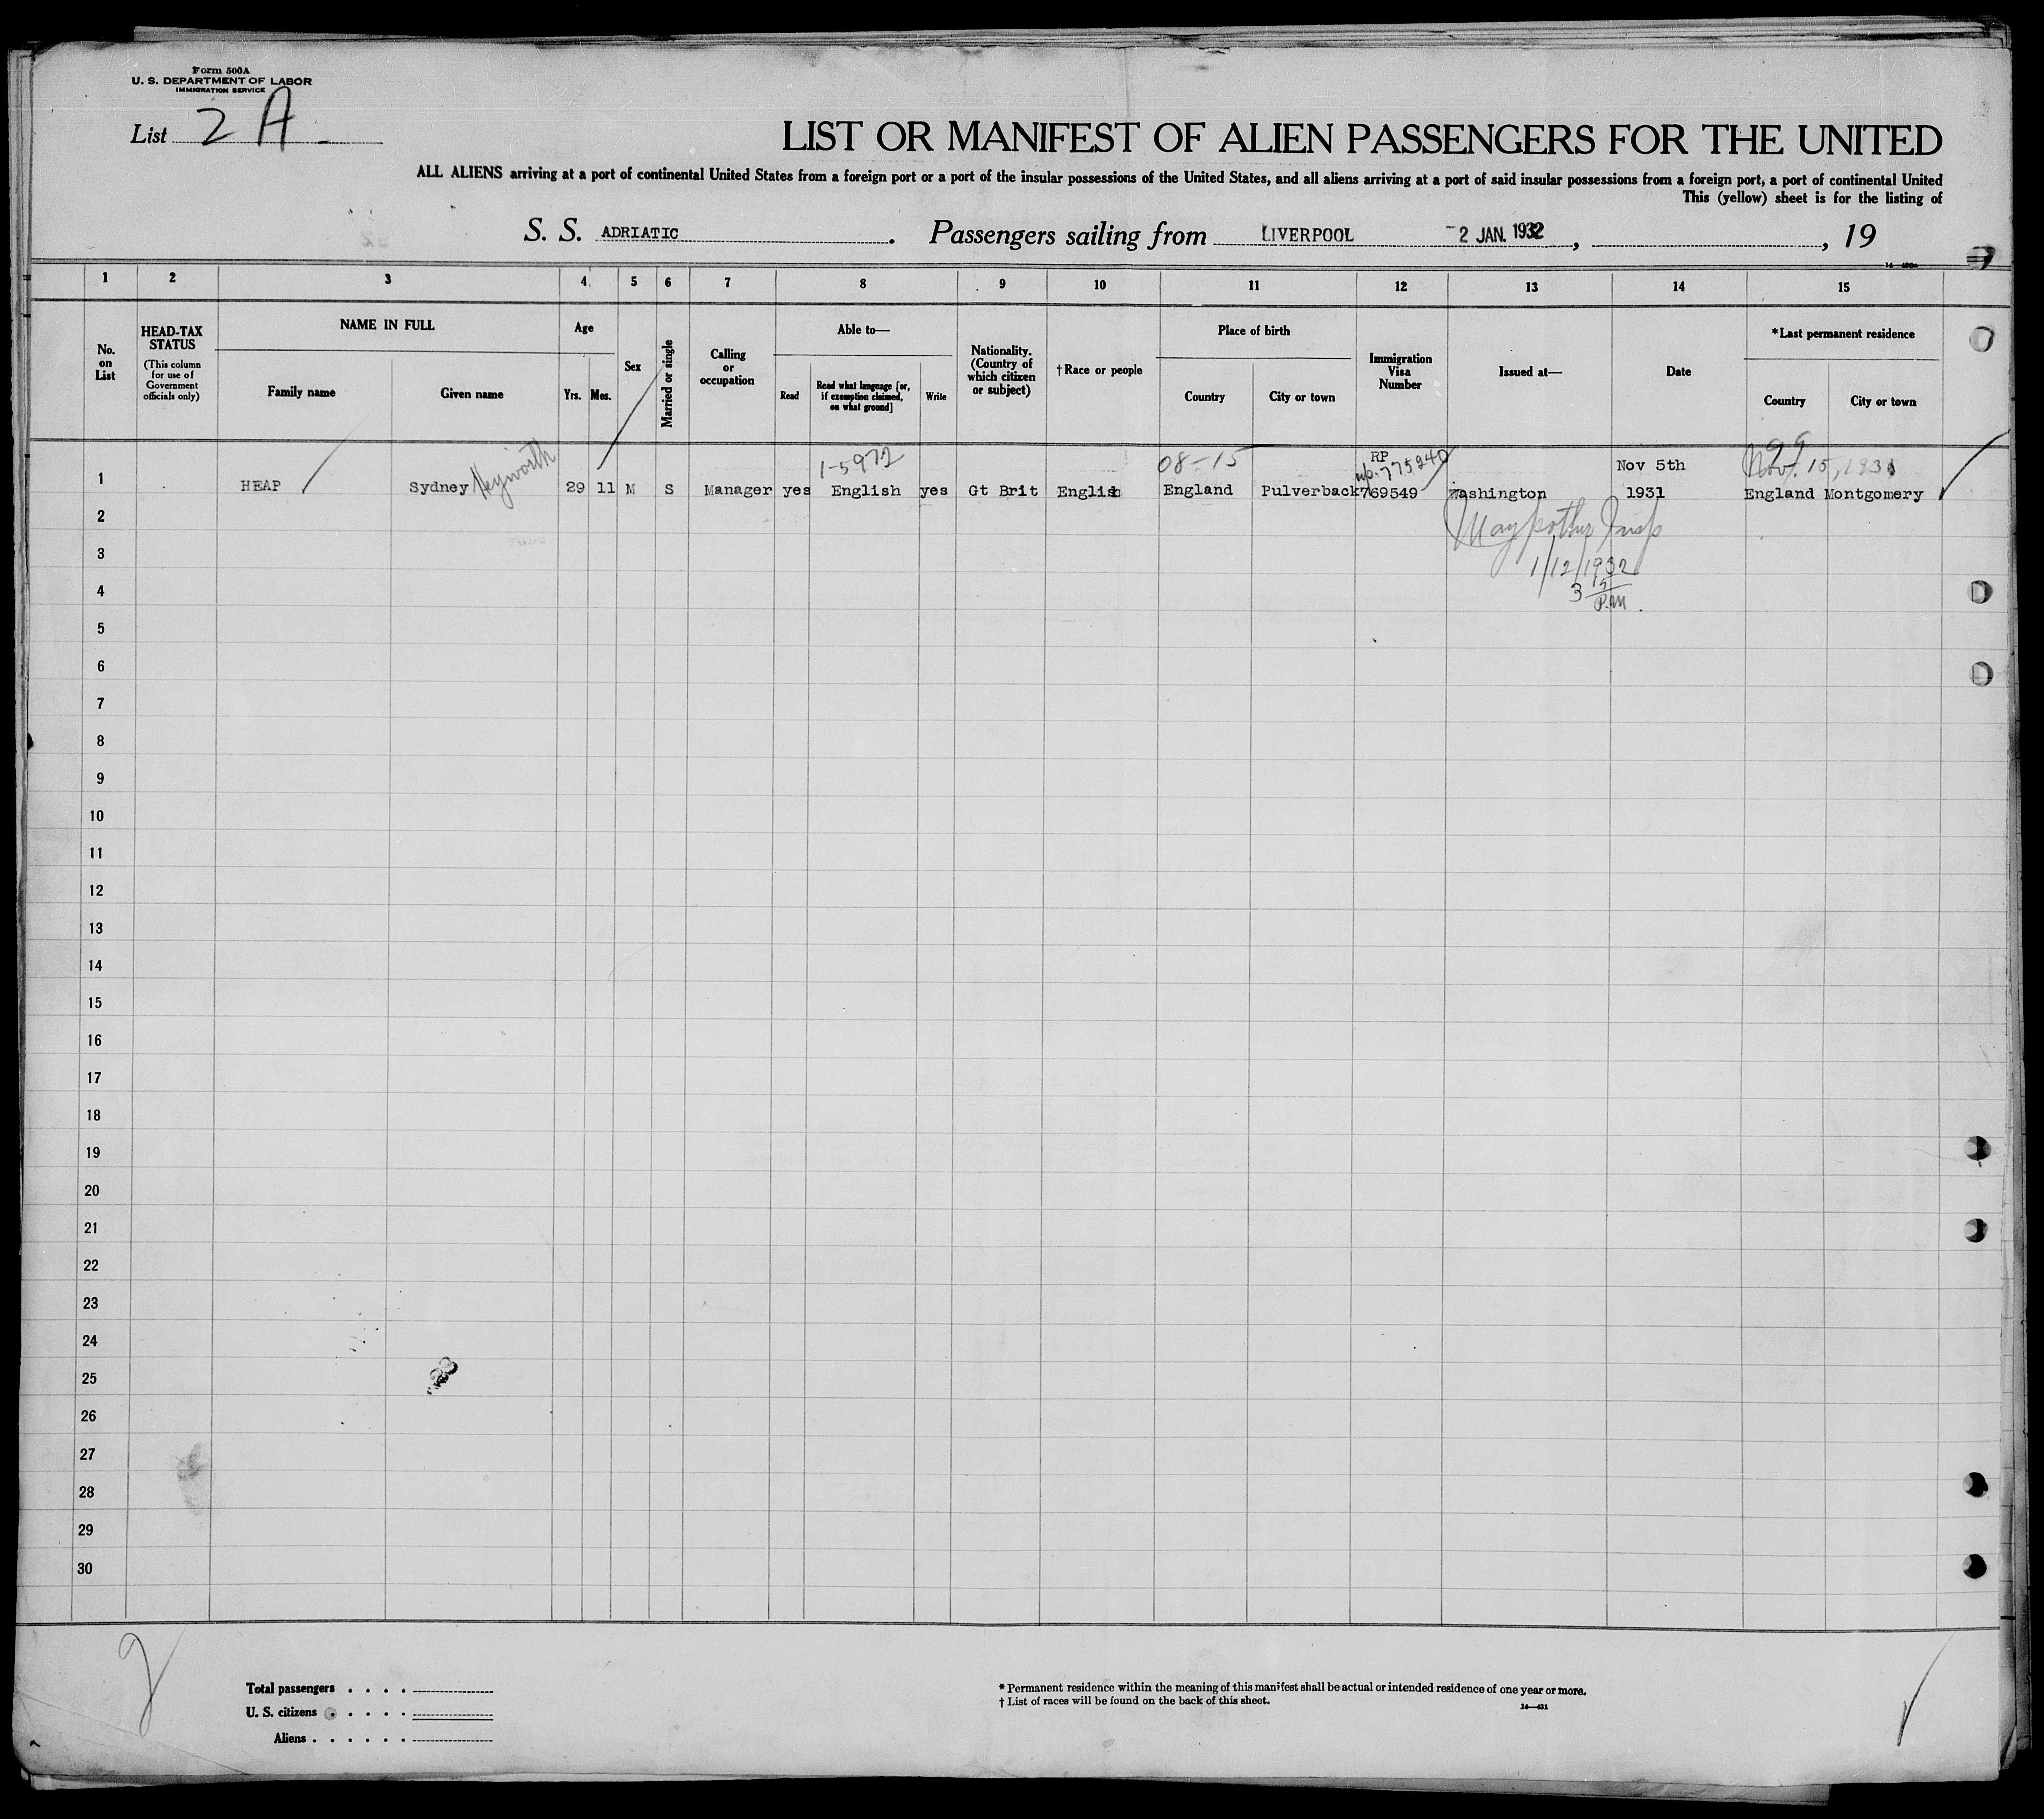 Form 500A
U. S. DEPARTMENT OF LABOR
IMMIGRATION SERVICE
List 2 A
LIST OR MANIFEST OF ALIEN PASSENGERS FOR THE UNITED
ALL ALIENS arriving at a port of continental United States from a foreign port or a port of the insular possessions of the United States, and all aliens arriving at a port of said insular possessions from a foreign port, a port of continental United
This (yellow) sheet is for the listing of
S. S. ADRIATIC. Passengers sailing from LIVERPOOL -2 JAN. 1932, , 19
1 2 3 4 5 6 7 8 9 10 11 12 13 14 15
No. on List
HEAD-TAX STATUS
(This column for use of Government officials only)
NAME IN FULL
Family name Given name
Age
Yrs. Mos.
Sex
Married or single
Calling or occupation
Able to—
Read
Read what language [or, if exemption claimed, on what ground]
Write
Nationality. (Country of which citizen or subject)
†Race or people
Place of birth
Country City or town
Immigration Visa Number
Issued at—
Date
*Last permanent residence
Country City or town
1-5972 08-15 RP 775240 Nov 5th 99 Nov. 15, 1931
1 HEAP Sydney Heyworth 29 11 M S Manager yes English yes Gt Brit English England Pulverback 769549 Washington 1931 England Montgomery
2
Insp
3
1/12/1932
4
3 15 P.M.
5
6
7
8
9
10
11
12
13
14
15
16
17
18
19
20
21
22
23
24
25
26
27
28
29
30
2
Total passengers . . . .
U. S. citizens . . . . .
Aliens . . . . . .
* Permanent residence within the meaning of this manifest shall be actual or intended residence of one year or more.
† List of races will be found on the back of this sheet.
14—421